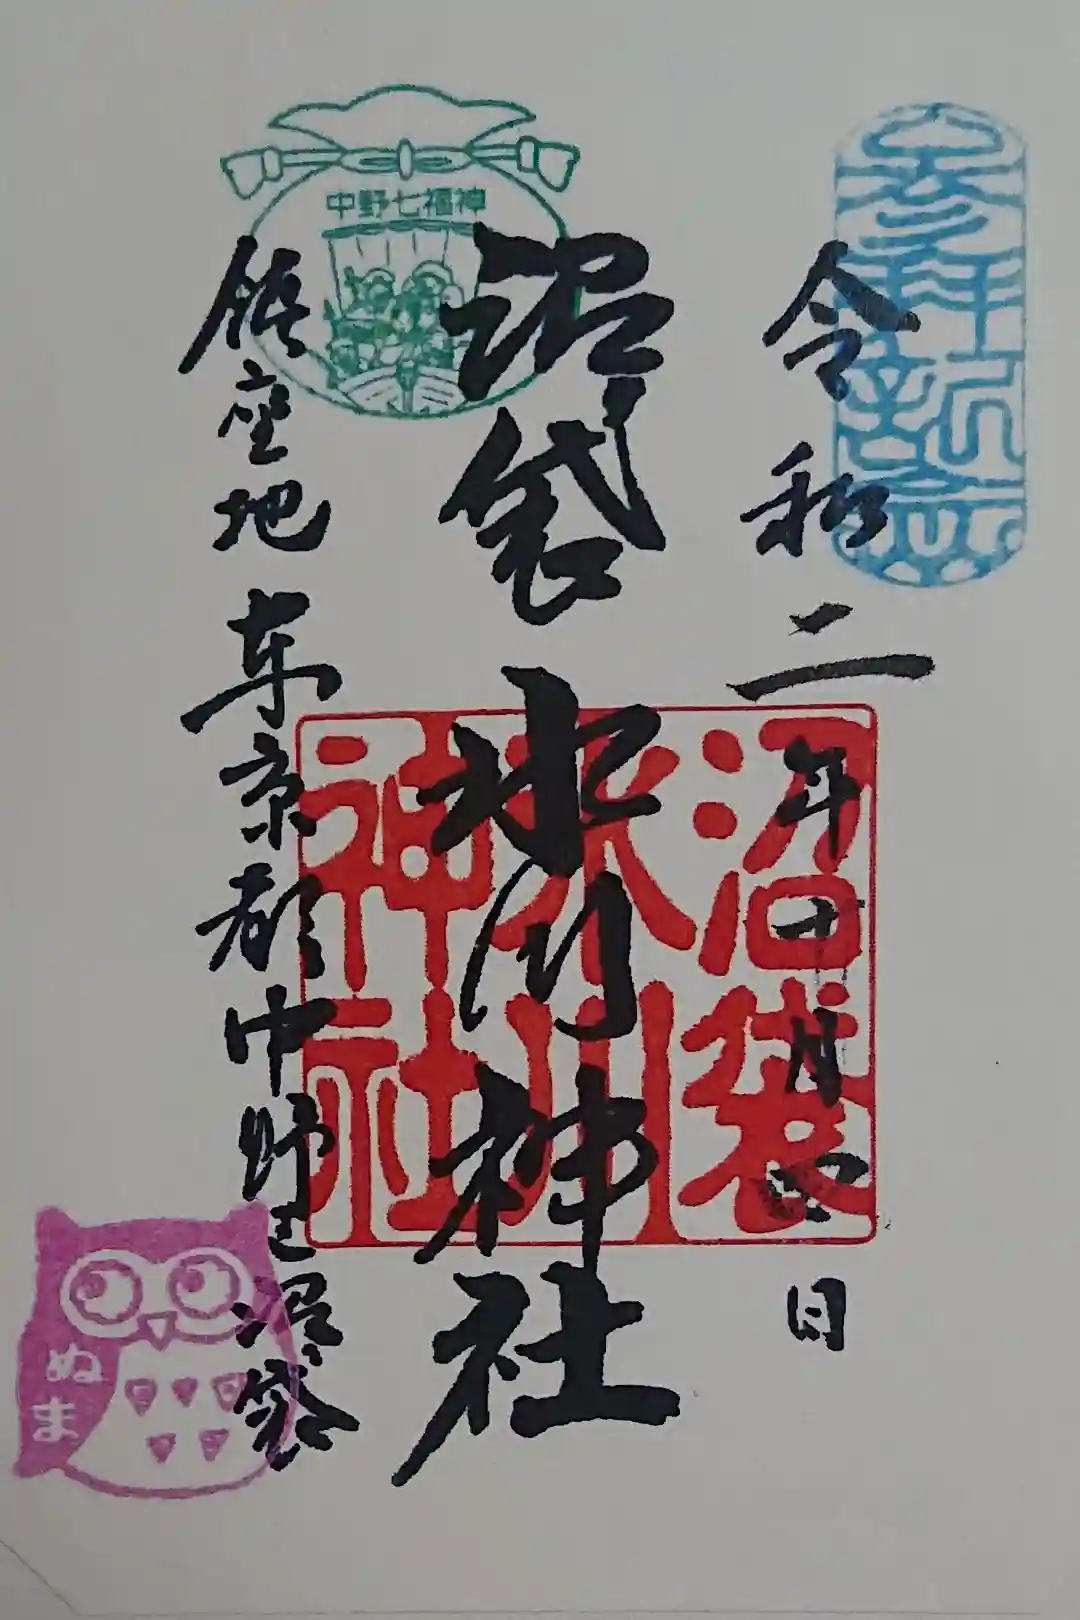 参拝記念
令和二年十一月四日
中野七福神
沼袋氷川神社
沼袋
氷川
神社
鎮座地 東京都中野区沼袋
ぬま